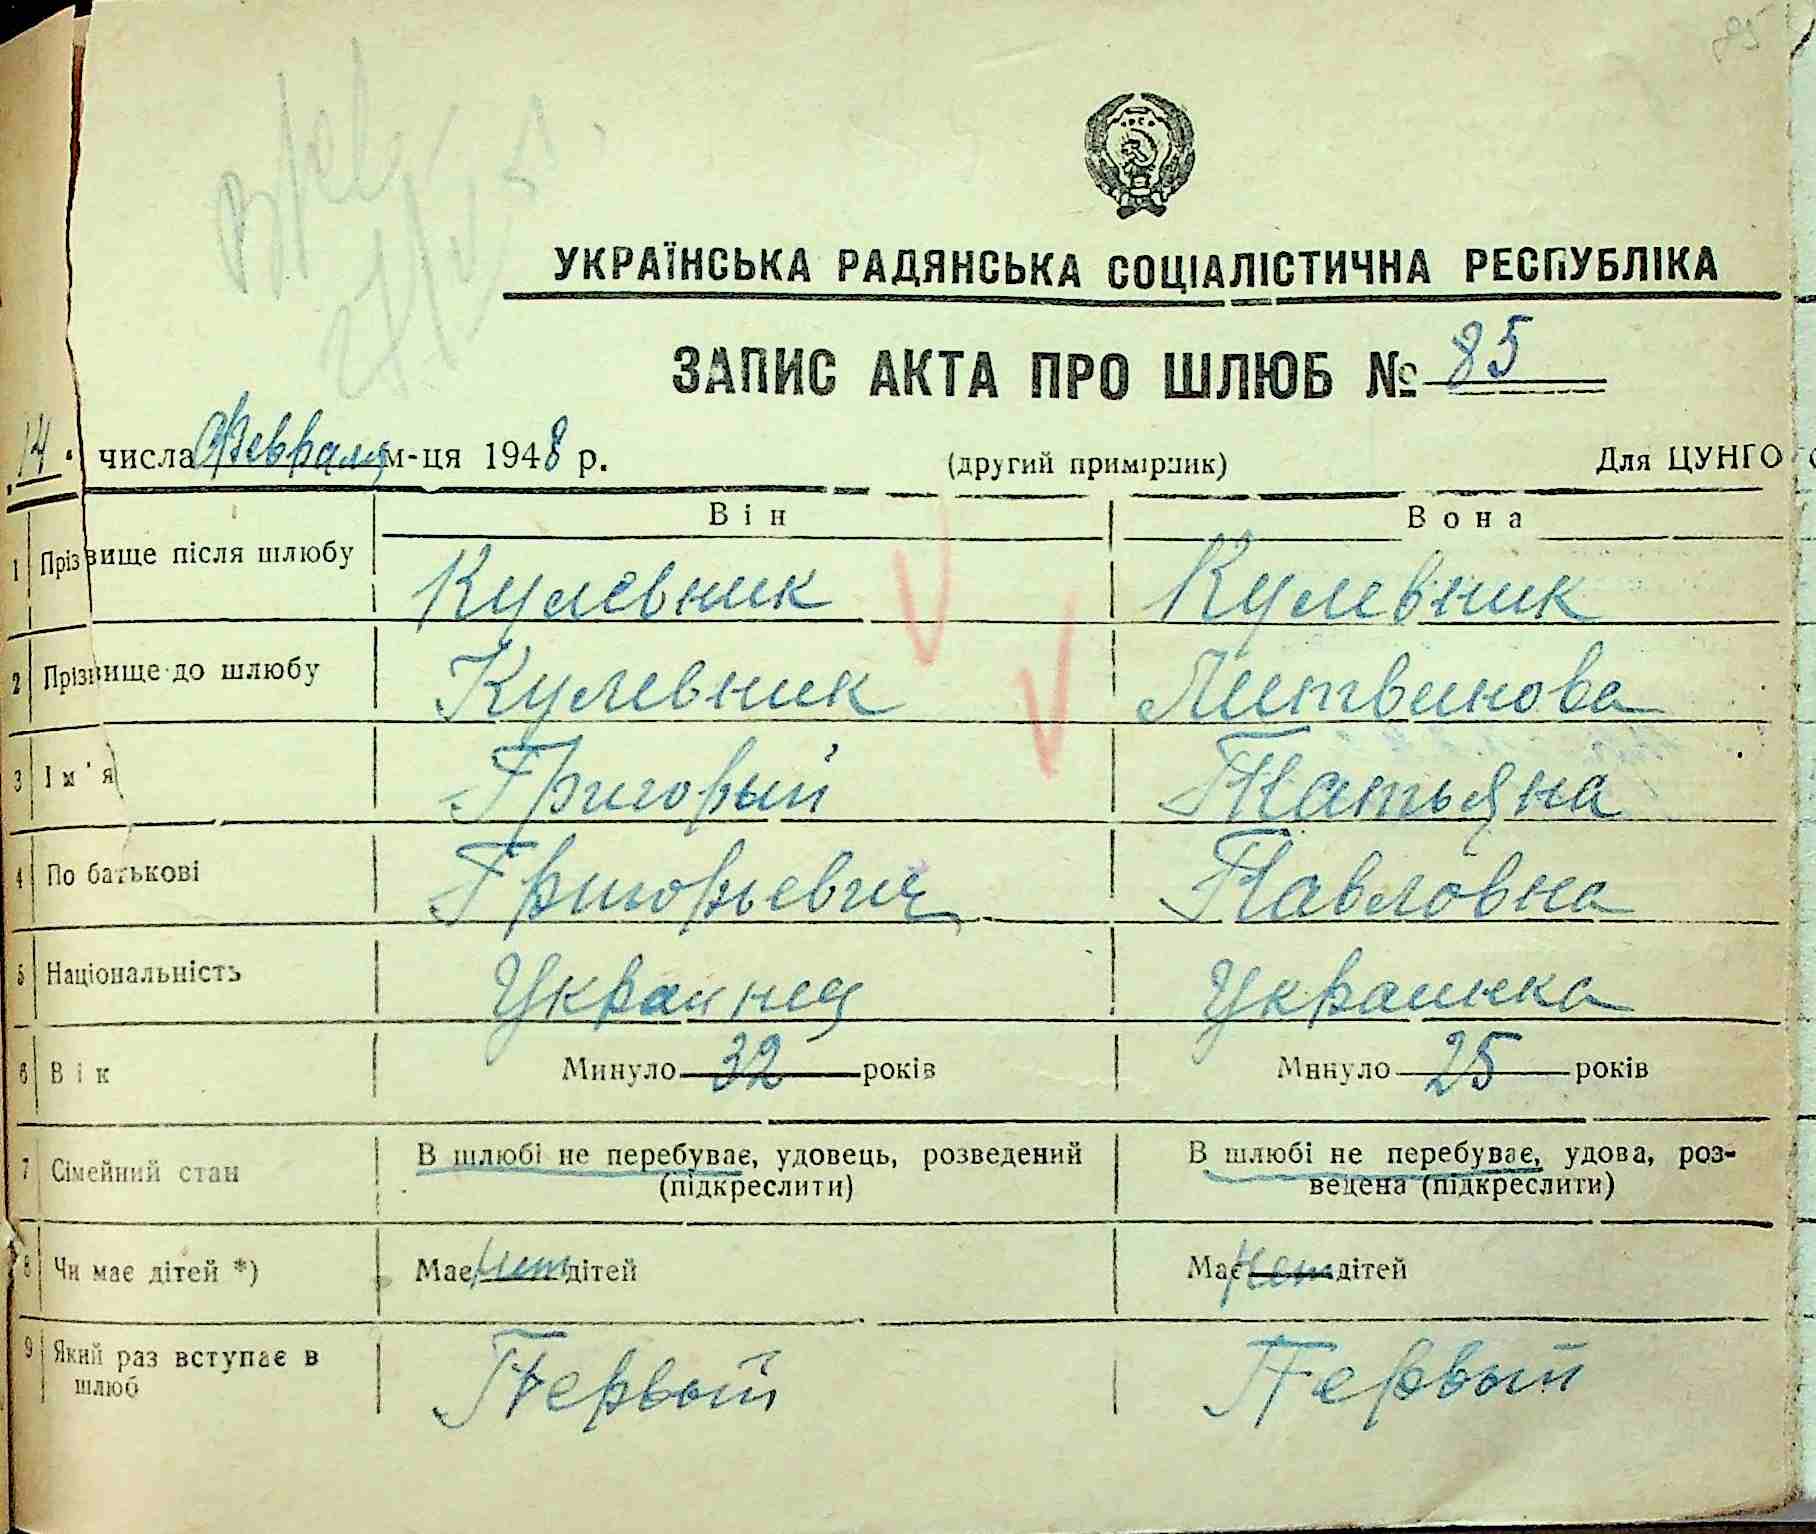 85
УКРАЇНСЬКА РАДЯНСЬКА СОЦІАЛІСТИЧНА РЕСПУБЛІКА
ЗАПИС АКТА ПРО ШЛЮБ № 85
14. числа Февраля м-ця 1948 р. (другий примірник) Для ЦУНГО
Він Вона
1 Прізвище після шлюбу Кулевник Кулевник
2 Прізвище до шлюбу Кулевник Литвинова
3 Ім'я Григорий Татьяна
4 По батькові Григорьевич Павловна
5 Національність Украинец Украинка
6 Вік Минуло 32 років Минуло 25 років
7 Сімейний стан В шлюбі не перебуває, удовець, розведений В шлюбі не перебуває, удова, роз-
(підкреслити) ведена (підкреслити)
8 Чи має дітей *) Має нет дітей Має нет дітей
9 Який раз вступає в Первый Первый
шлюб